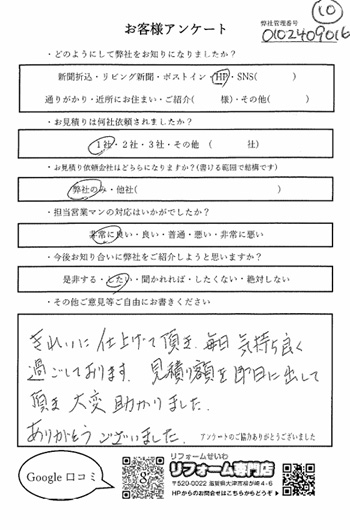 ⑩
弊社管理番号
0102409016
お客様アンケート
・どのようにして弊社をお知りになりましたか？
新聞折込・リビング新聞・ポストイン・HP・SNS(　　　)
通りがかり・近所にお住まい・ご紹介(　　　様)・その他(　　　)
・お見積りは何社依頼されましたか？
1社・2社・3社・その他　(　　　社)
・お見積り依頼会社はどちらになりますか？(書ける範囲で結構です)
弊社のみ・他社(　　　)
・担当営業マンの対応はいかがでしたか？
非常に良い・良い・普通・悪い・非常に悪い
・今後お知り合いに弊社をご紹介しようと思いますか？
是非する・したい・聞かれれば・したくない・絶対しない
・その他ご意見等ご自由にお書きください
きれいに仕上げて頂き、毎日気持ち良く
過ごしております。見積り額を即日に出して
頂き大変助かりました。
ありがとうございました。
アンケートのご協力ありがとうございました
Google 口コミ
リフォームせいわ
リフォーム専門店
〒520-0022 滋賀県大津市柳が崎4-6
HPからのお問合せはこちらからどうぞ